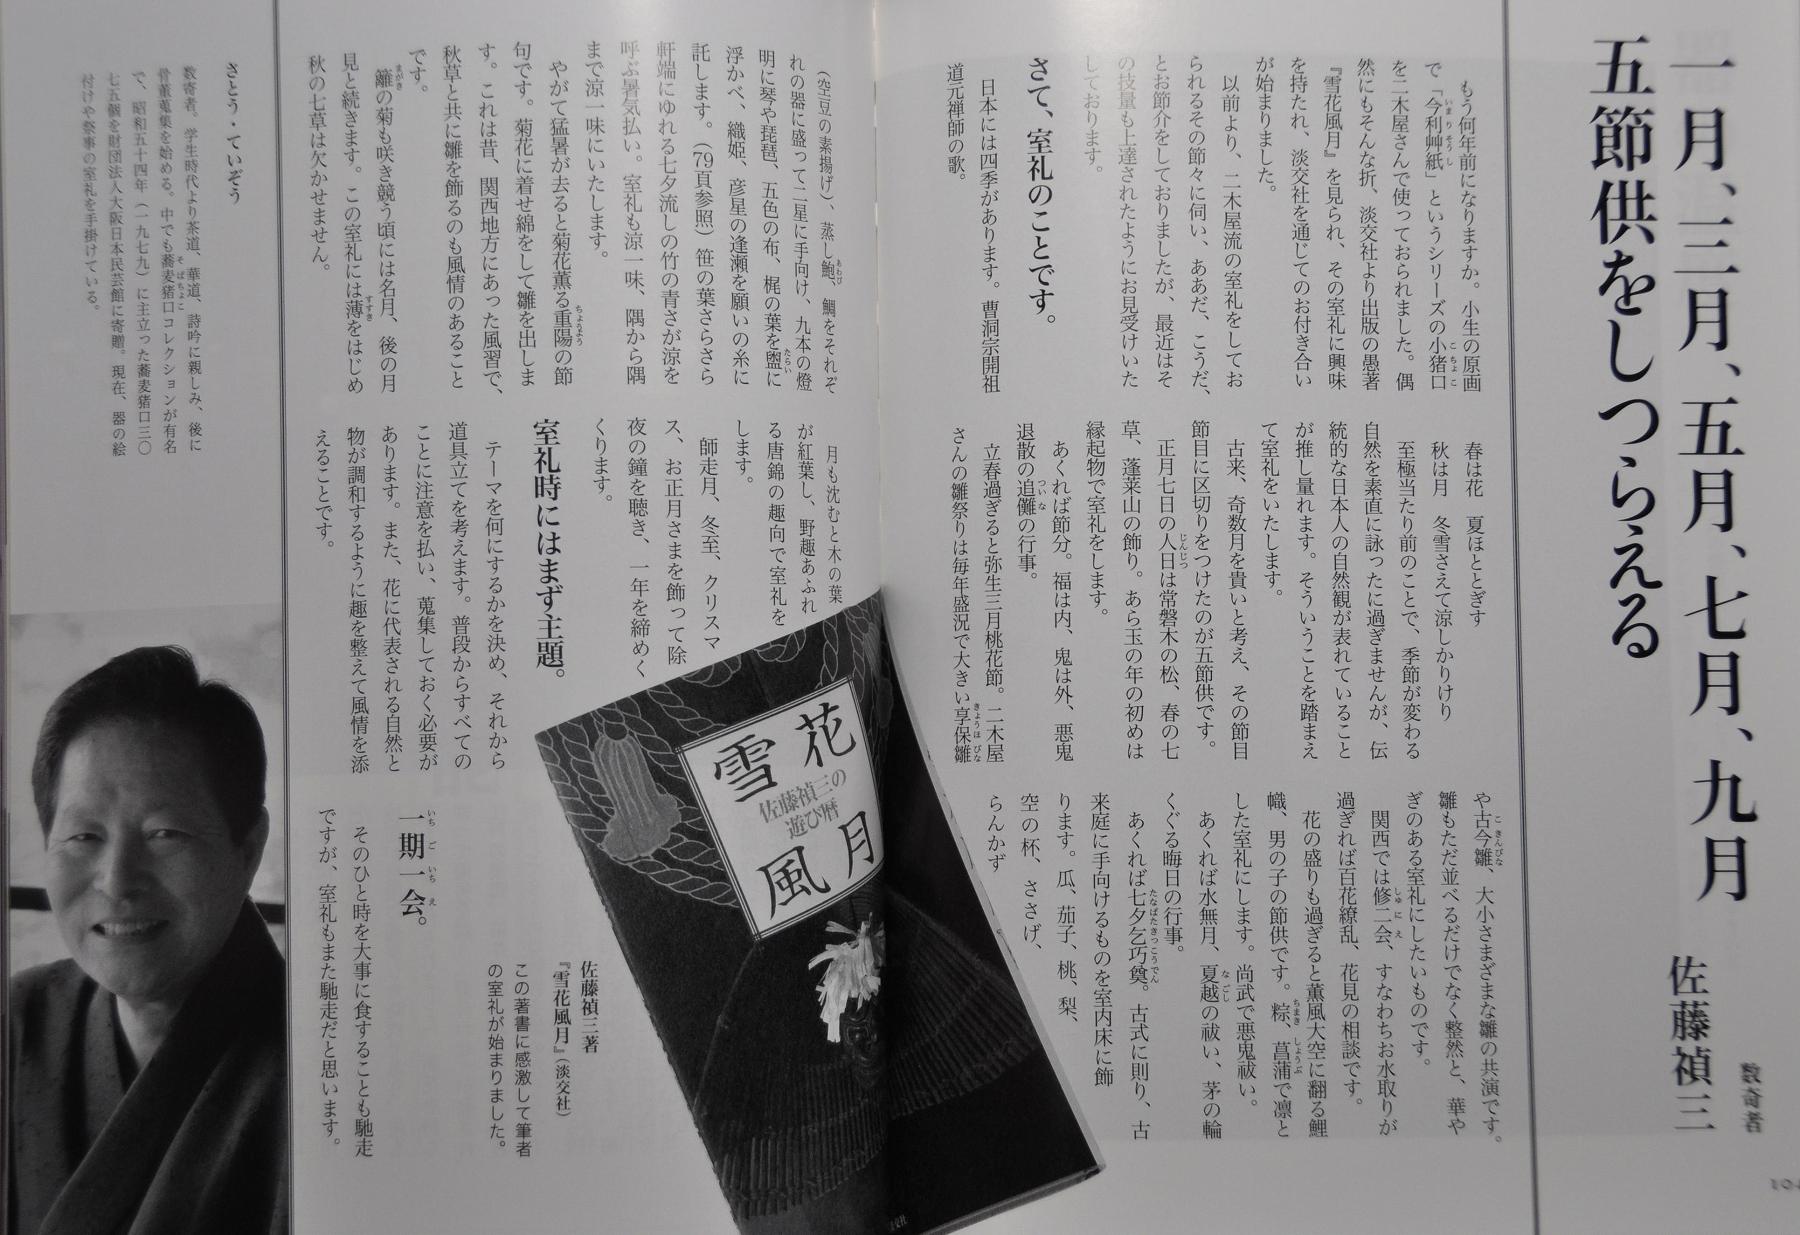 一月、三月、五月、七月、九月
五節供をしつらえる
数寄者
佐藤禎三
もう何年前になりますか。小生の原画
で「今利艸紙」というシリーズの小猪口
を二木屋さんで使っておられました。偶
然にもそんな折、淡交社より出版の愚著
『雪花風月』を見られ、その室礼に興味
を持たれ、淡交社を通じてのお付き合い
が始まりました。
以前より、二木屋流の室礼をしてお
られるその節々に伺い、ああだ、こうだ、
とお節介をしておりましたが、最近はそ
の技量も上達されたようにお見受けいた
しております。
さて、室礼のことです。
日本には四季があります。曹洞宗開祖
道元禅師の歌。
春は花　夏ほととぎす
秋は月　冬雪さえて涼しかりけり
至極当たり前のことで、季節が変わる
自然を素直に詠ったに過ぎませんが、伝
統的な日本人の自然観が表れていること
が推し量れます。そういうことを踏まえ
て室礼をいたします。
古来、奇数月を貴いと考え、その節目
節目に区切りをつけたのが五節供です。
正月七日の人日は常磐木の松、春の七
草、蓬莱山の飾り。あら玉の年の初めは
縁起物で室礼をします。
あくれば節分。福は内、鬼は外、悪鬼
退散の追儺の行事。
立春過ぎると弥生三月桃花節。二木屋
さんの雛祭りは毎年盛況で大きい享保雛
や古今雛、大小さまざまな雛の共演です。
雛もただ並べるだけでなく整然と、華や
ぎのある室礼にしたいものです。
関西では修二会、すなわちお水取りが
過ぎれば百花繚乱、花見の相談です。
花の盛りも過ぎると薫風大空に翻る鯉
幟、男の子の節供です。粽、菖蒲で凛と
した室礼にします。尚武で悪鬼祓い。
あくれば水無月、夏越の祓い、茅の輪
くぐる晦日の行事。
あくれば七夕乞巧奠。古式に則り、古
来庭に手向けるものを室内床に飾
ります。瓜、茄子、桃、梨、
空の杯、ささげ、
らんかず
(空豆の素揚げ)、蒸し鮑、鯛をそれぞ
れの器に盛って二星に手向け、九本の燈
明に琴や琵琶、五色の布、梶の葉を盥に
浮かべ、織姫、彦星の逢瀬を願いの糸に
託します。(79頁参照) 笹の葉さらさら
軒端にゆれる七夕流しの竹の青さが涼を
呼ぶ暑気払い。室礼も涼一味、隅から隅
まで涼一味にいたします。
やがて猛暑が去ると菊花薫る重陽の節
句です。菊花に着せ綿をして雛を出しま
す。これは昔、関西地方にあった風習で、
秋草と共に雛を飾るのも風情のあること
です。
籬の菊も咲き競う頃には名月、後の月
見と続きます。この室礼には薄をはじめ
秋の七草は欠かせません。
月も沈むと木の葉
が紅葉し、野趣あふれ
る唐錦の趣向で室礼を
します。
師走月、冬至、クリスマ
ス、お正月さまを飾って除
夜の鐘を聴き、一年を締めく
くります。
室礼時にはまず主題。
テーマを何にするかを決め、それから
道具立てを考えます。普段からすべての
ことに注意を払い、蒐集しておく必要が
あります。また、花に代表される自然と
物が調和するように趣を整えて風情を添
えることです。
一期一会。
そのひと時を大事に食することも馳走
ですが、室礼もまた馳走だと思います。
佐藤禎三著
『雪花風月』(淡交社)
この著書に感激して筆者
の室礼が始まりました。
雪花
佐藤禎三の
遊び暦
風月
さとう・ていぞう
数寄者。学生時代より茶道、華道、詩吟に親しみ、後に
骨董蒐集を始める。中でも蕎麦猪口コレクションが有名
で、昭和五十四年(一九七九)に主立った蕎麦猪口三〇
七五個を財団法人大阪日本民芸館に寄贈。現在、器の絵
付けや祭事の室礼を手掛けている。